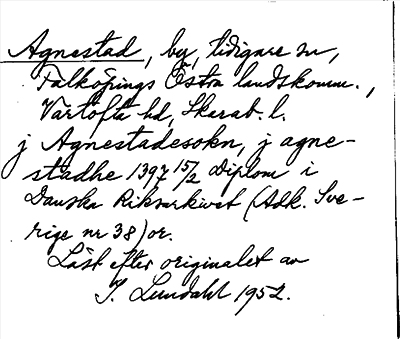 Agnestad, by, tidigare sn,
Falköpings Östra landskomm.,
Vartofta hd, Skarab. l.
j Agnestadesokn, j agne-
stadhe 1397 15/2 Diplom i
Danska Riksarkivet (Adk. Sve-
rige nr 38) or.
Läst efter originalet av
I. Lundahl 1952.